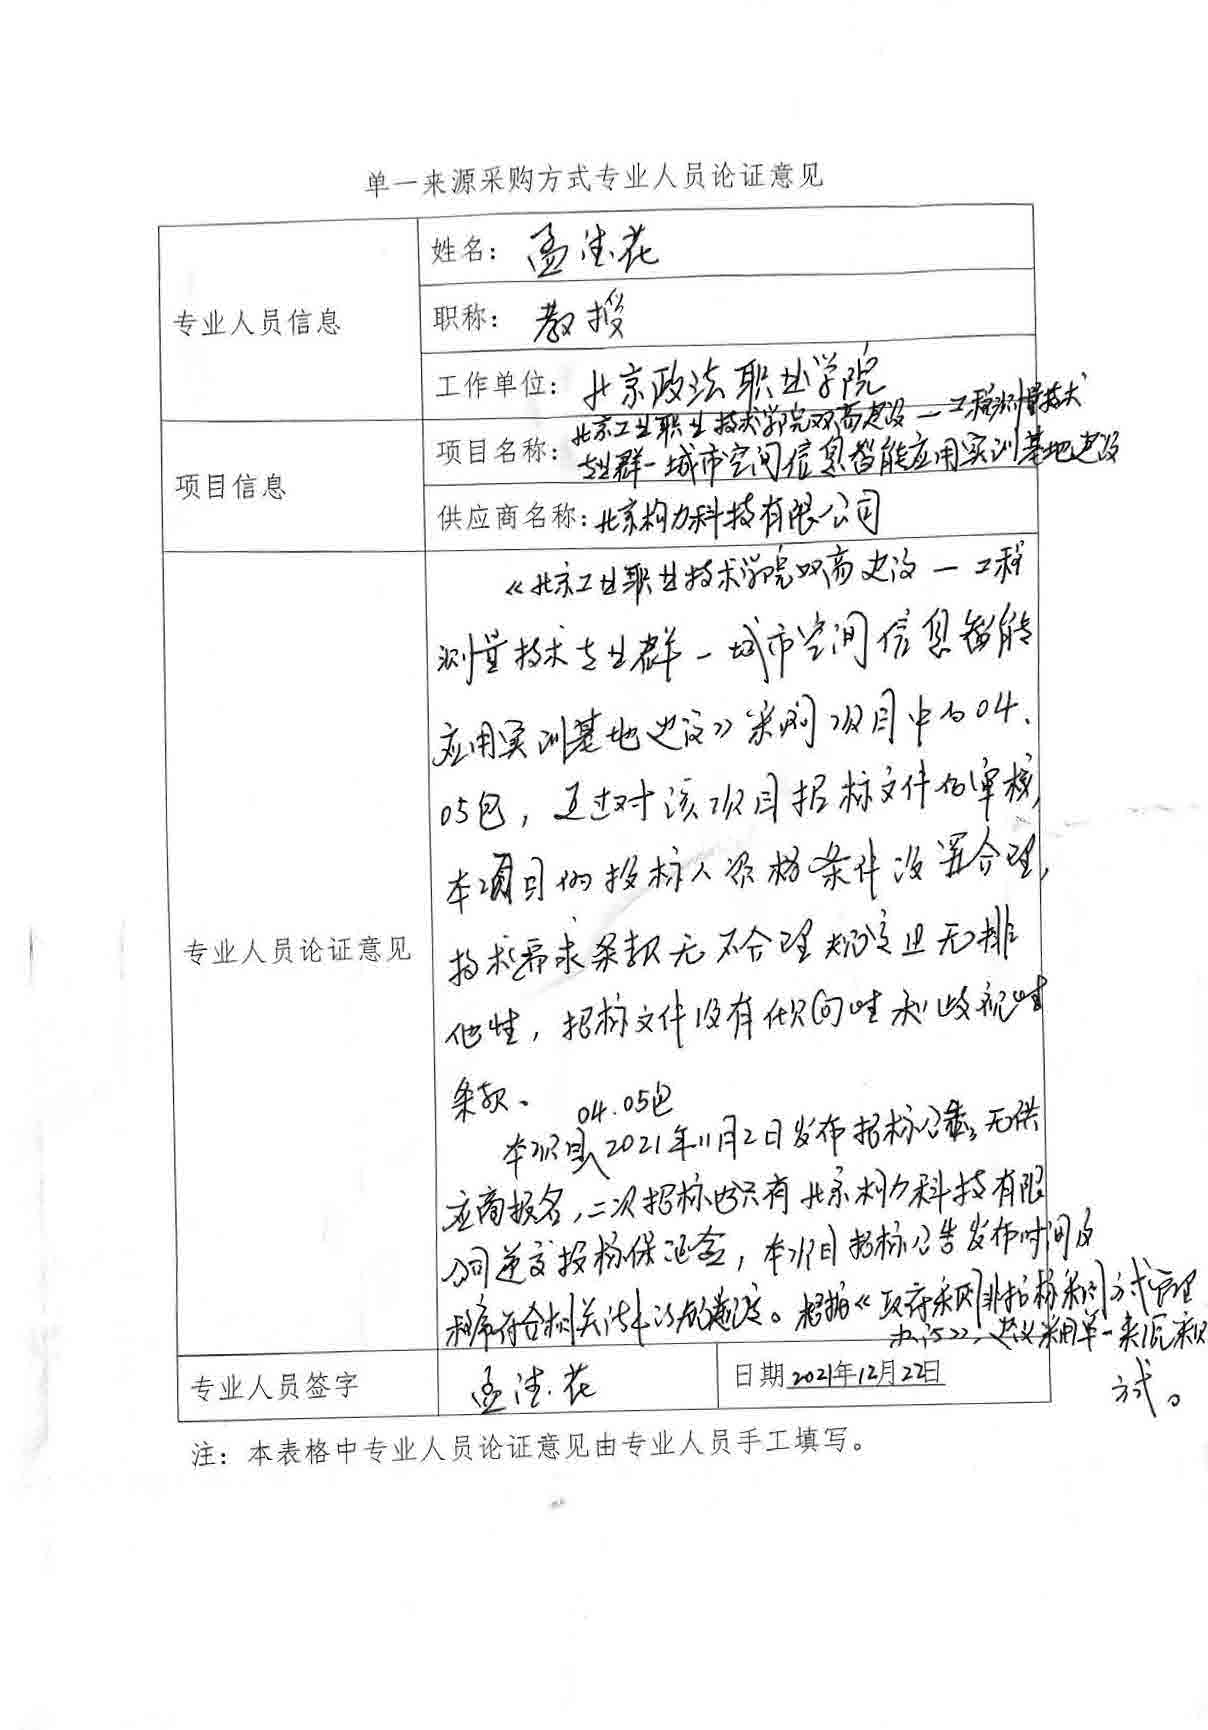 单一来源采购方式专业人员论证意见
专业人员信息
姓名：孟洁花
职称：教授
工作单位：北京政法职业学院
项目信息
项目名称：北京工业职业技术学院双高建设—工程测量技术
专业群—城市空间信息智能应用实训基地建设
供应商名称：北京构力科技有限公司
专业人员论证意见
《北京工业职业技术学院双高建设—工程
测量技术专业群—城市空间信息智能
应用实训基地建设》采购项目中的04、
05包，通过对该项目招标文件的审核，
本项目的投标人资格条件设置合理，
技术需求条款无不合理规定且无排
他性，招标文件没有倾向性和歧视性
条款。
04.05包
本项目2021年11月2日发布招标公告，无供
应商报名，二次招标也只有北京构力科技有限
公司递交投标保证金，本项目招标公告发布时间及
程序符合相关法律法规。根据《政府采购非招标采购方式管理
办法》，建议采用单一来源采购
方式。
专业人员签字
孟洁花
日期 2021年12月22日
注：本表格中专业人员论证意见由专业人员手工填写。